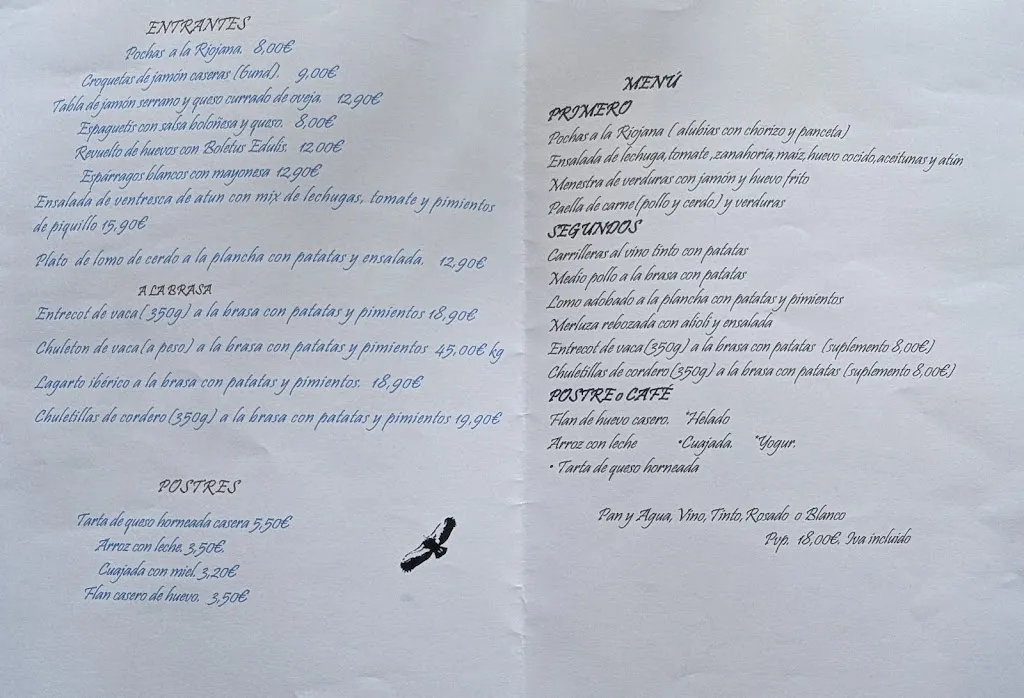 ENTRANTES
Pochas a la Riojana. 8,00€
Croquetas de jamón caseras (6und). 9,00€
Tabla de jamón serrano y queso currado de oveja. 12,90€
Espaguetis con salsa boloñesa y queso. 8,00€
Revuelto de huevos con Boletus Edulis. 12,00€
Espárragos blancos con mayonesa 12,90€
Ensalada de ventresca de atun con mix de lechugas, tomate y pimientos
de piquillo 15,90€
Plato de lomo de cerdo a la plancha con patatas y ensalada. 12,90€
A LA BRASA
Entrecot de vaca (350g) a la brasa con patatas y pimientos 18,90€
Chuleton de vaca (a peso) a la brasa con patatas y pimientos 45,00€ kg
Lagarto ibérico a la brasa con patatas y pimientos. 18,90€
Chuletillas de cordero (350g) a la brasa con patatas y pimientos 19,90€
POSTRES
Tarta de queso horneada casera 5,50€
Arroz con leche. 3,50€.
Cuajada con miel. 3,20€
Flan casero de huevo. 3,50€
MENÚ
PRIMERO
Pochas a la Riojana ( alubias con chorizo y panceta)
Ensalada de lechuga, tomate ,zanahoria, maiz, huevo cocido, aceitunas y atún
Menestra de verduras con jamón y huevo frito
Paella de carne (pollo y cerdo) y verduras
SEGUNDOS
Carrilleras al vino tinto con patatas
Medio pollo a la brasa con patatas
Lomo adobado a la plancha con patatas y pimientos
Merluza rebozada con alioli y ensalada
Entrecot de vaca (350g) a la brasa con patatas (suplemento 8,00€)
Chuletillas de cordero (350g) a la brasa con patatas (suplemento 8,00€)
POSTRE o CAFÉ
Flan de huevo casero. *Helado
Arroz con leche •Cuajada. *Yogur.
• Tarta de queso horneada
Pan y Agua, Vino, Tinto, Rosado o Blanco
Pvp. 18,00€. Iva incluido